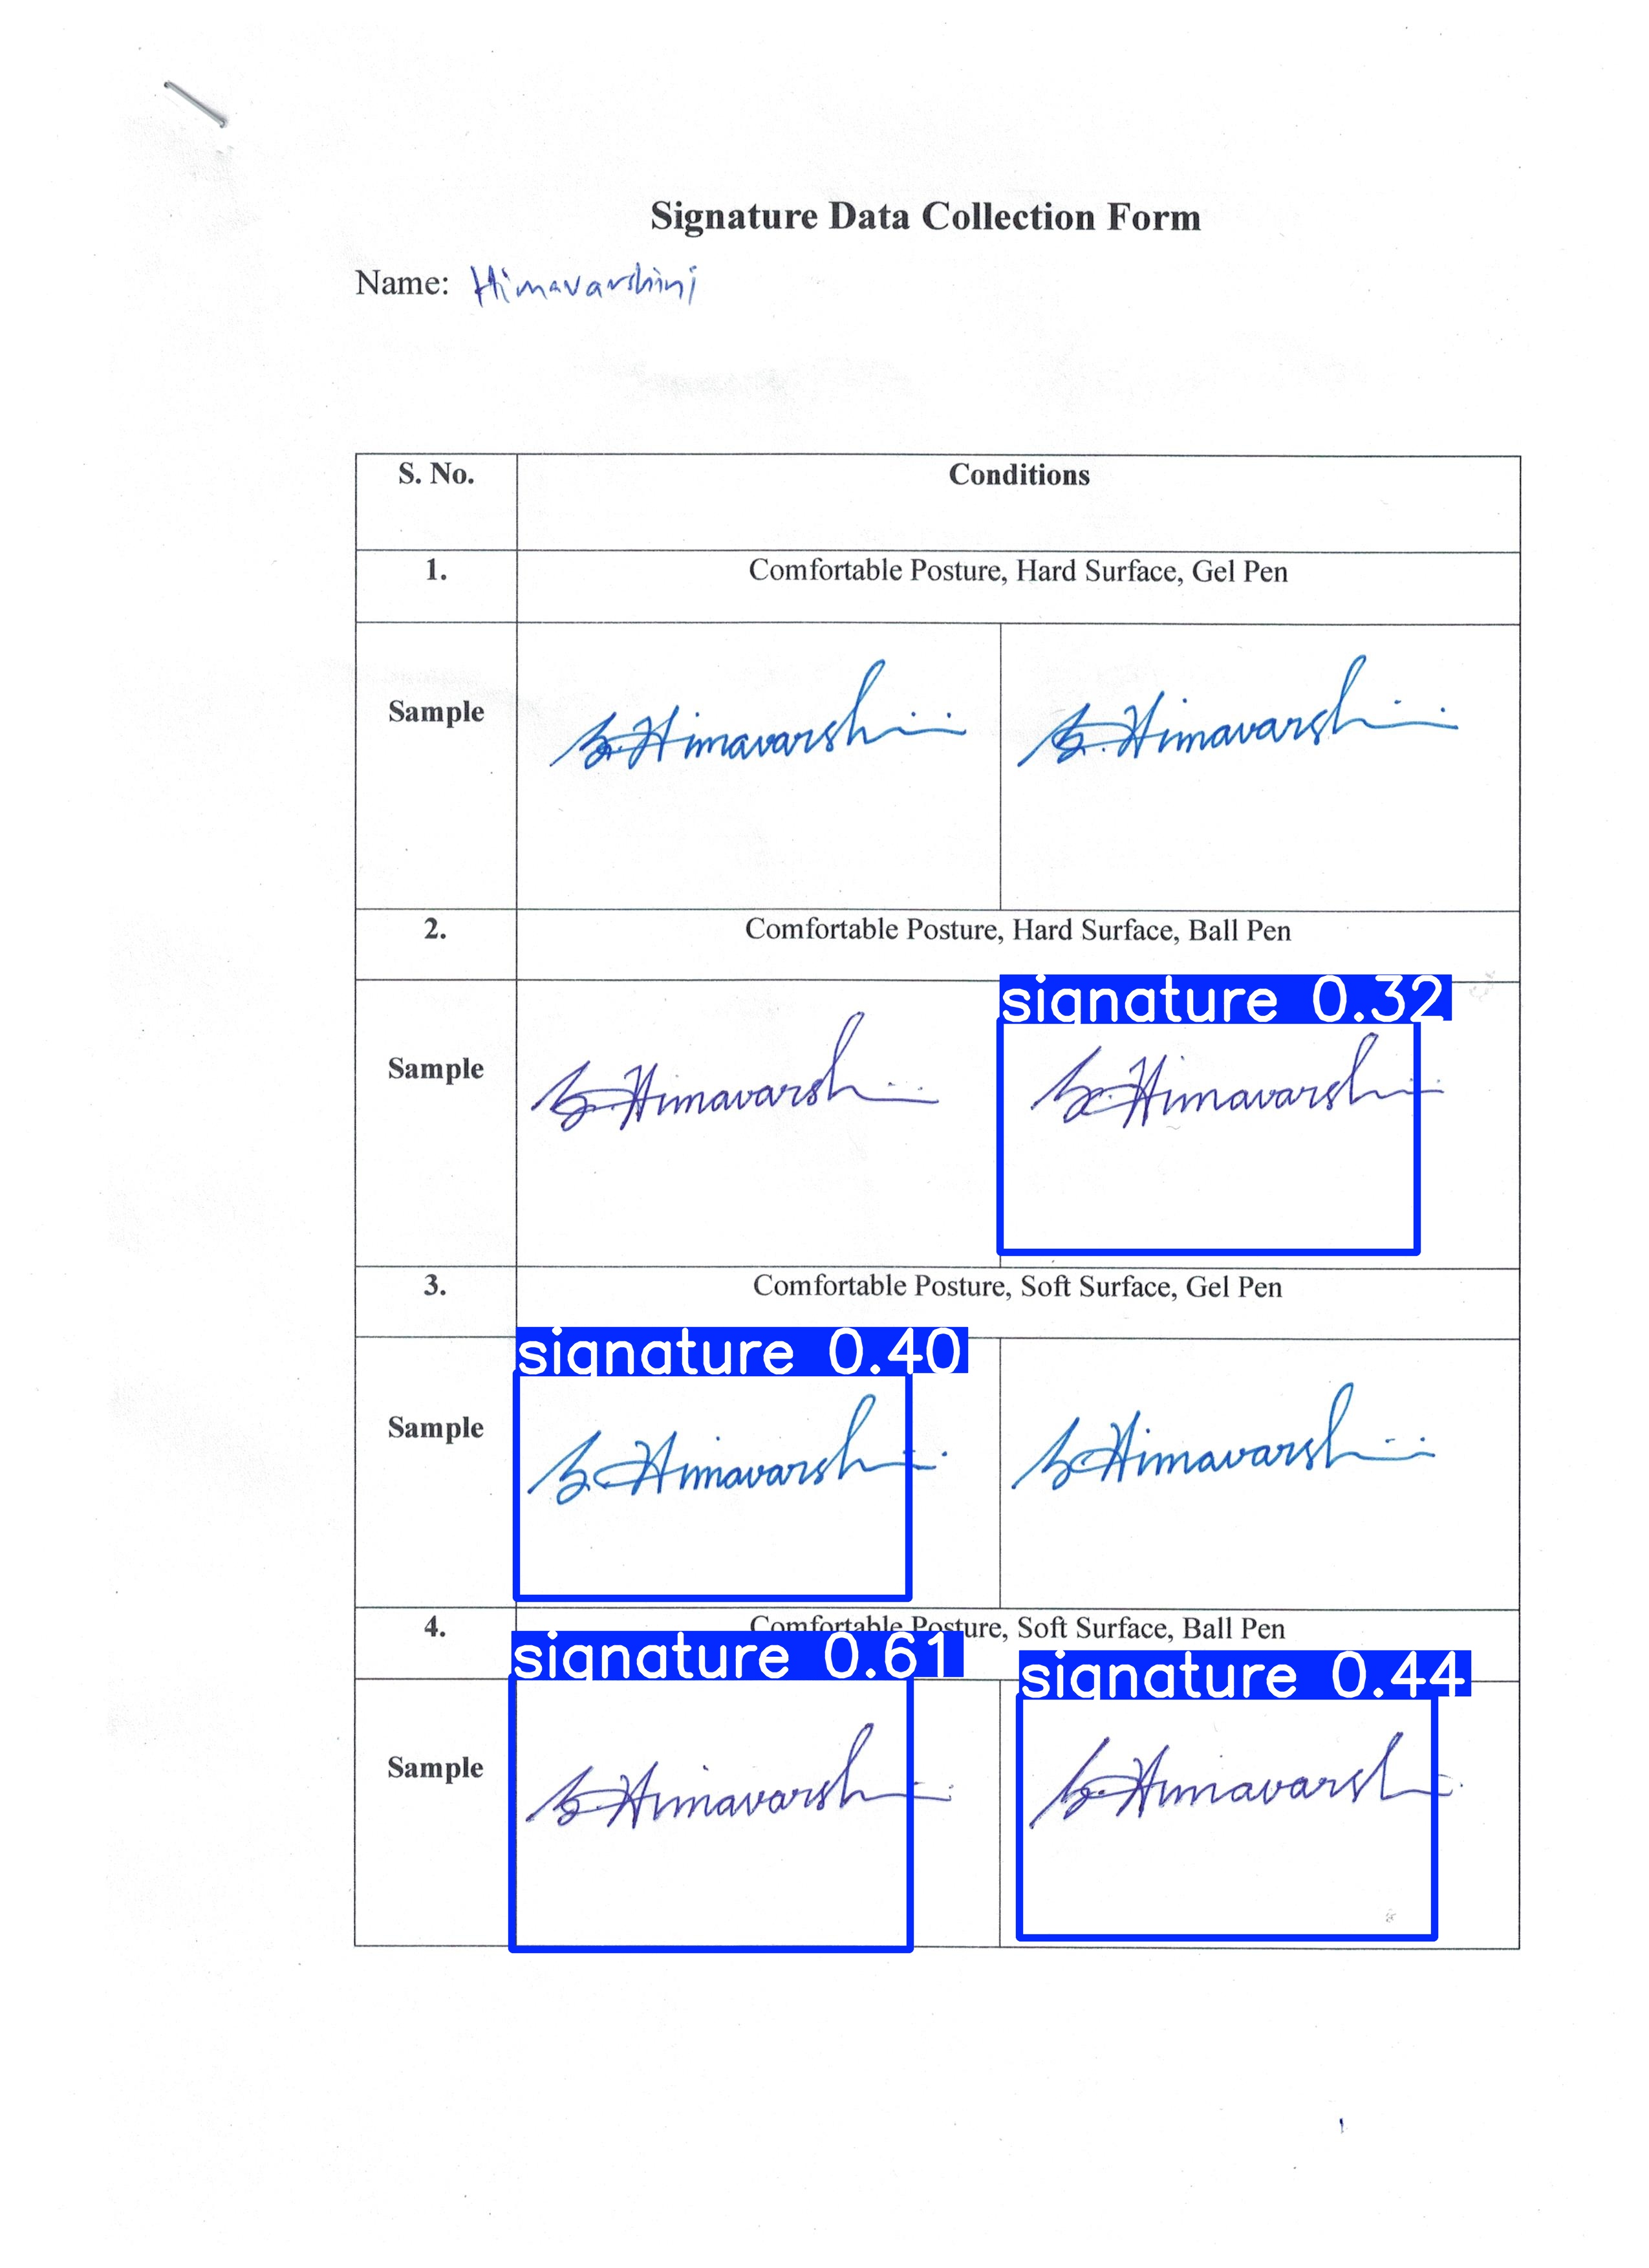 Signature Data Collection Form
Name: Himavarshini
S. No. Conditions
1. Comfortable Posture, Hard Surface, Gel Pen
Sample Himavarshini Himavarshini
2. Comfortable Posture, Hard Surface, Ball Pen
signature 0.32
Sample Himavarshini Himavarshini
3. Comfortable Posture, Soft Surface, Gel Pen
signature 0.40
Sample Himavarshini Himavarshini
4. Comfortable Posture, Soft Surface, Ball Pen
signature 0.61 signature 0.44
Sample Himavarshini Himavarshini